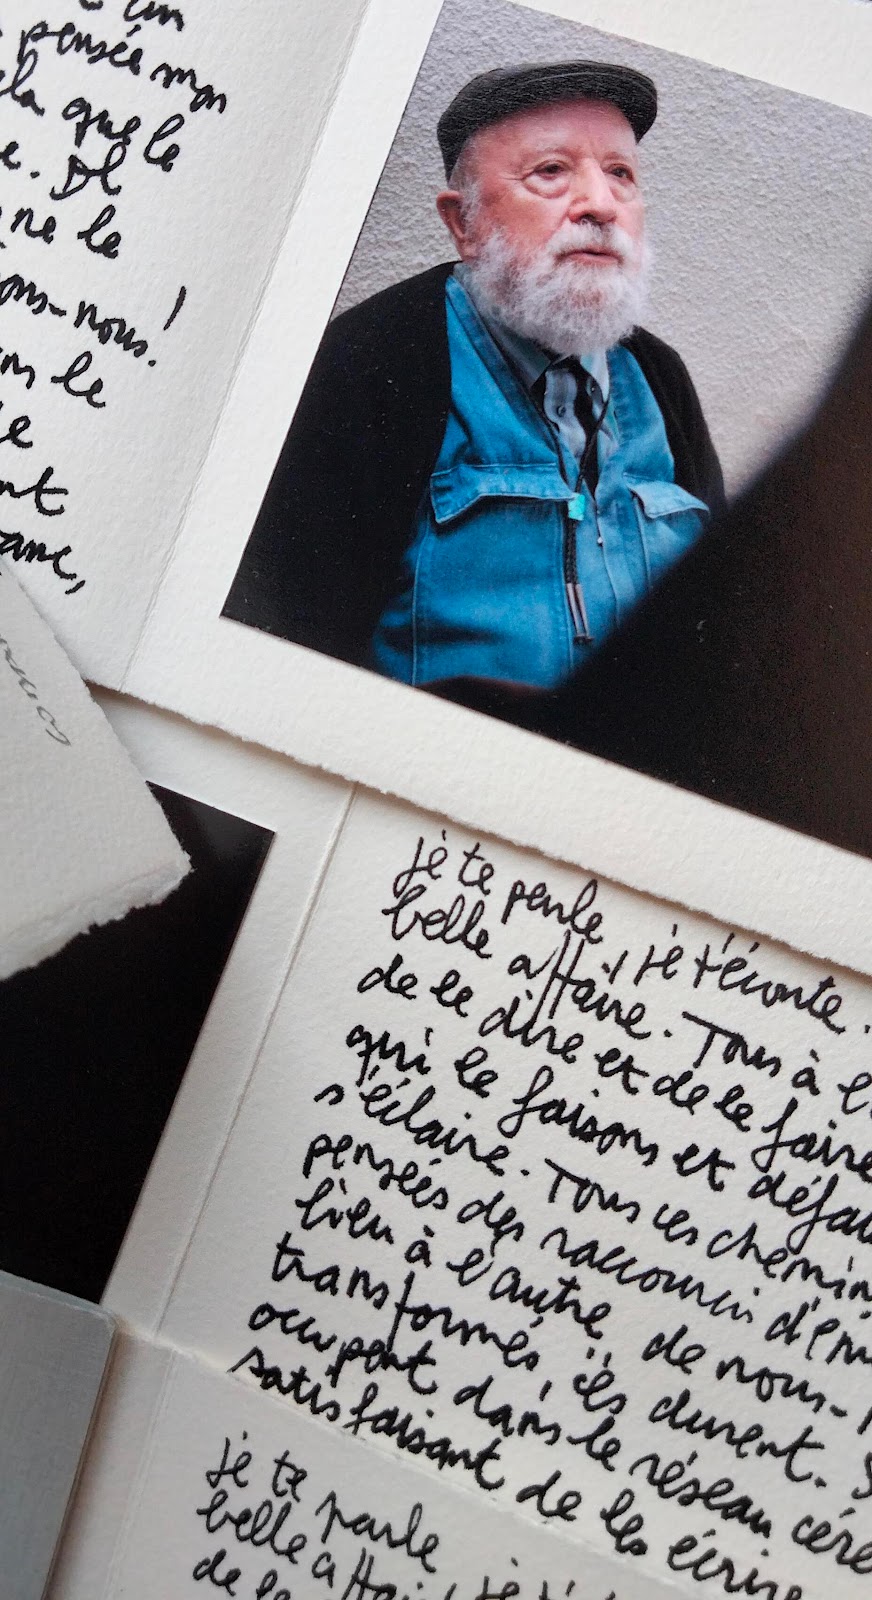 un
pensée mon
la que le
e.
ne le
ons-nous!
le
e
nt
anc,
je te parle, je t'écoute.
belle affaire. Tous à l
de le dire et de le faire
qui le faisons et défai
s'éclaire. Tous ces chemin
pensées des raccourcis d'em
lieu à l'autre de nous-
transformés, ils durent. S
occupent dans le réseau cére
satisfaisant de les écrire
je te parle
belle affai
de le